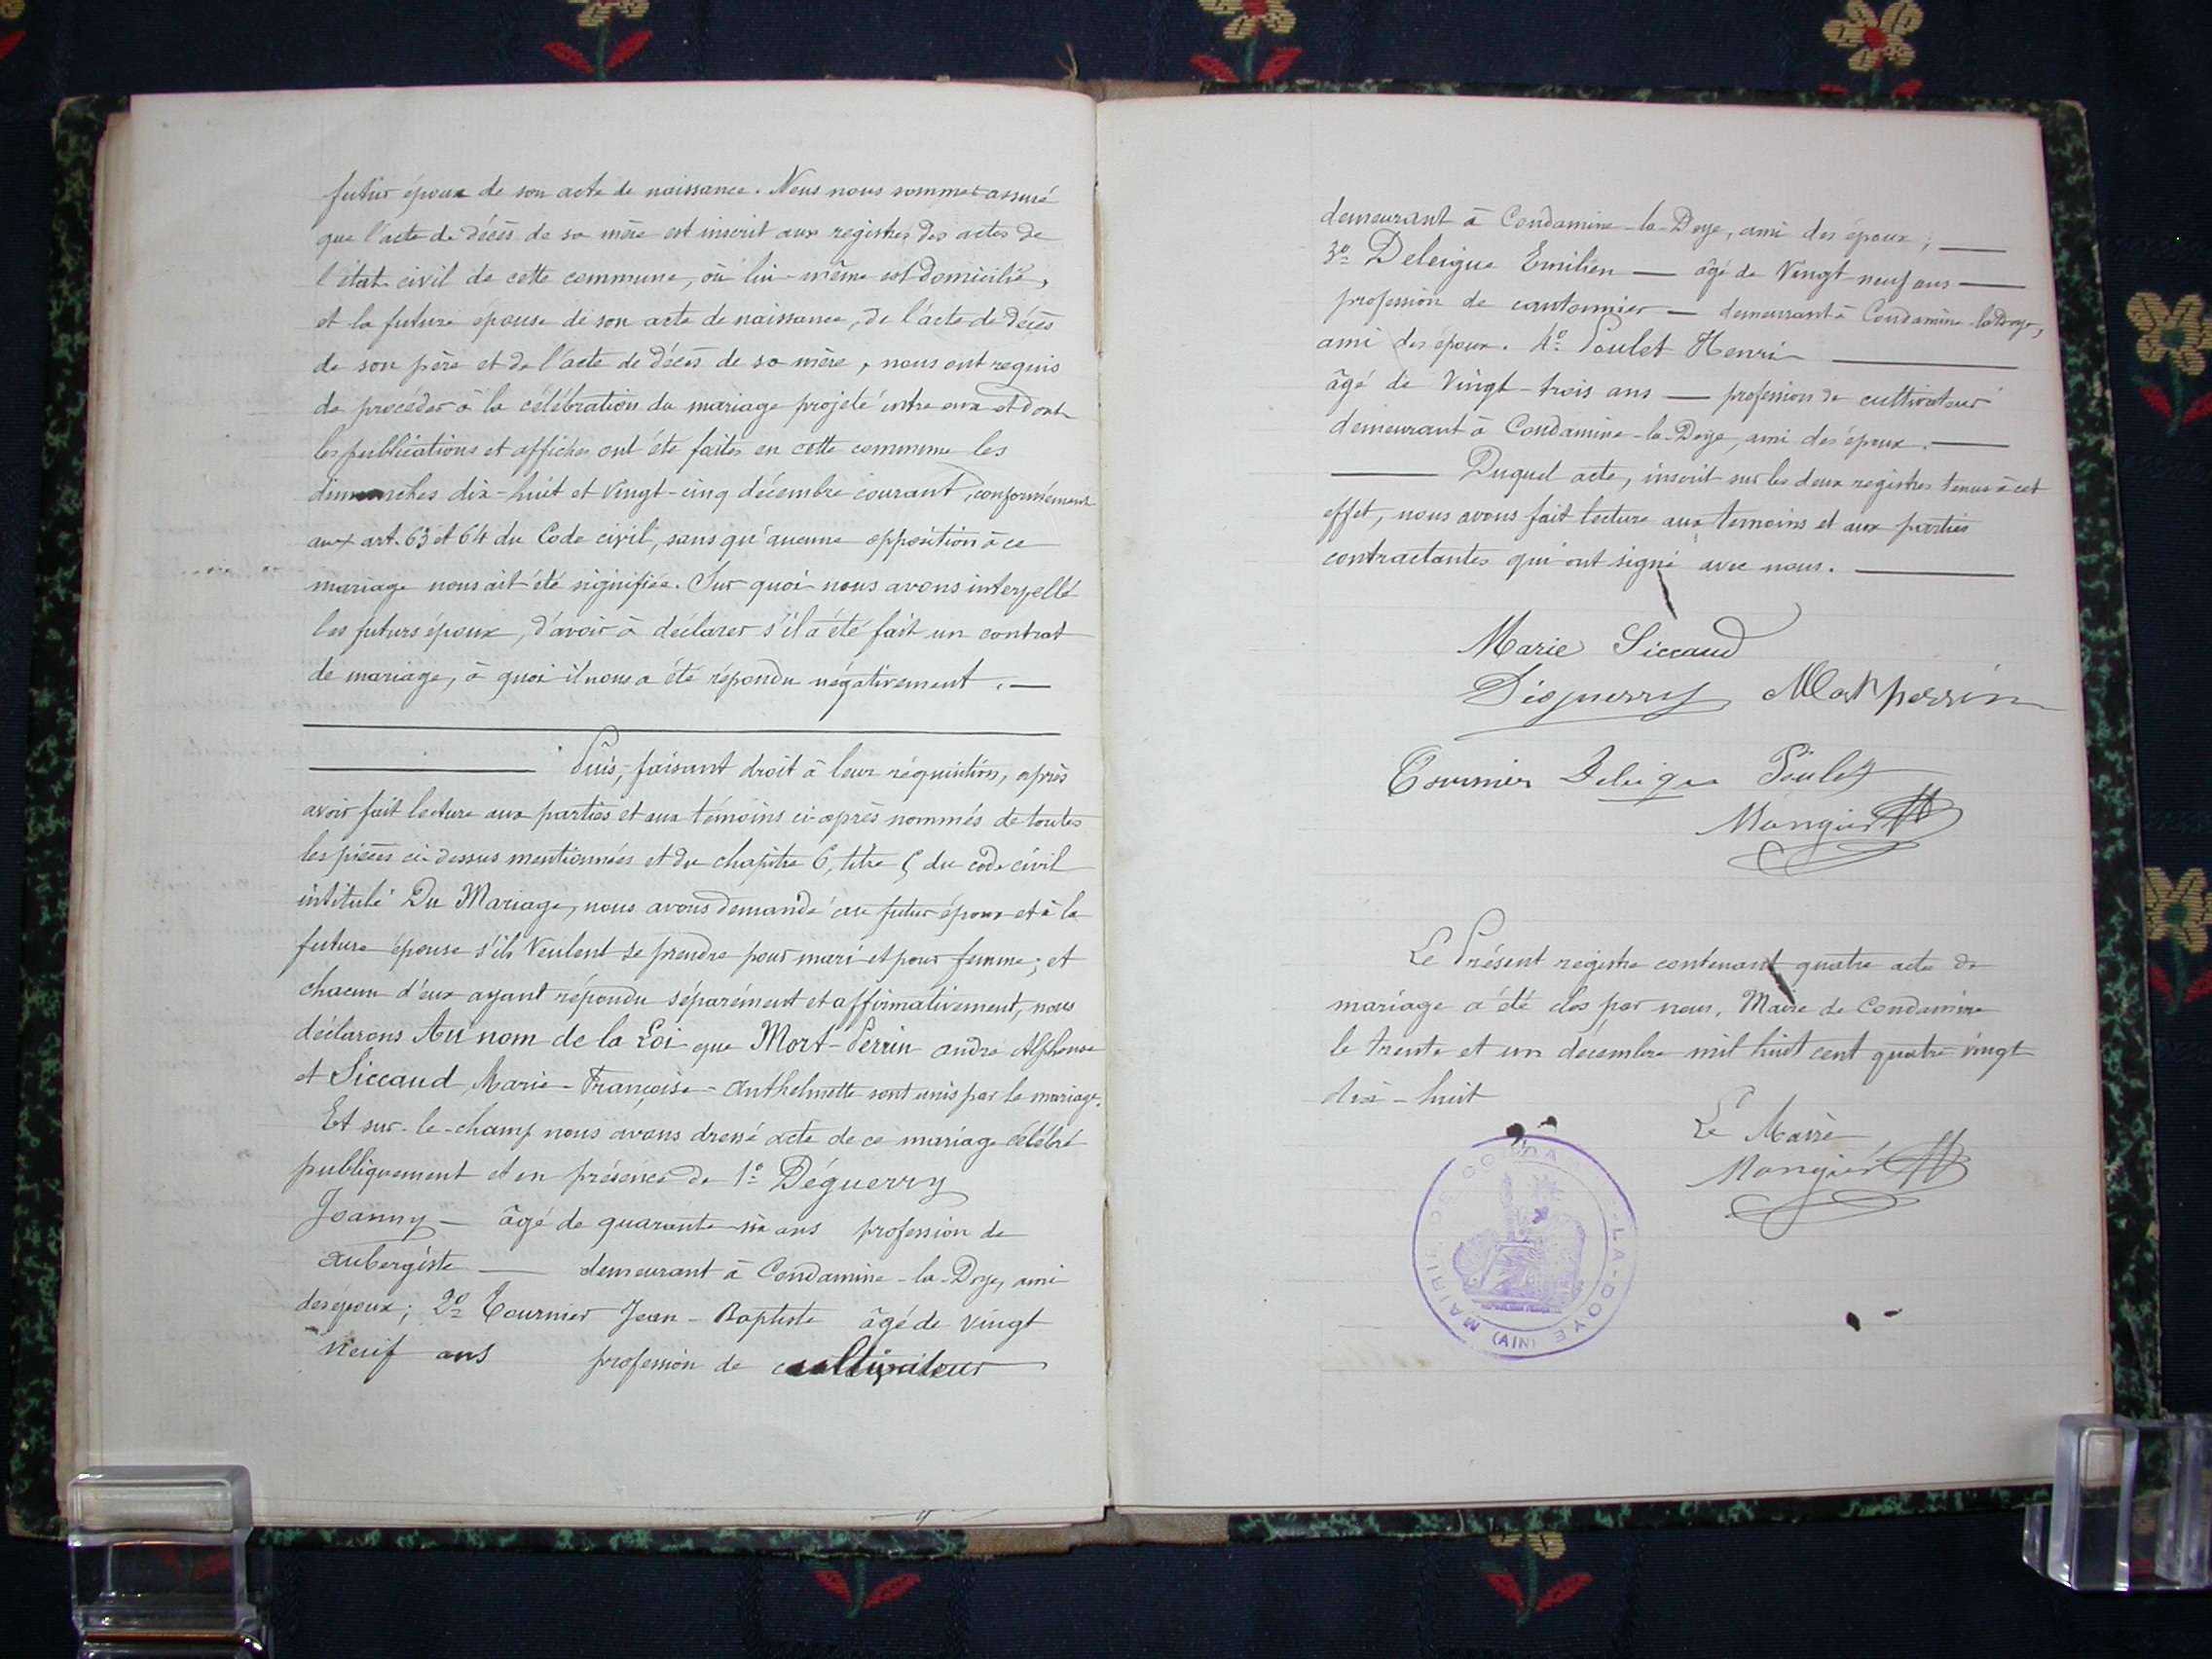 futur époux de son acte de naissance. Nous nous sommes assuré
que l'acte de décès de sa mère est inscrit aux registres des actes de
l'état civil de cette commune, où lui-même est domicilié,
et la future épouse de son acte de naissance, de l'acte de décès
de son père et de l'acte de décès de sa mère, nous ont requis
de procéder à la célébration du mariage projeté entre eux et dont
les publications et affiches ont été faites en cette commune les
dimanches dix-huit et vingt-cinq décembre courant, conformément
aux art. 63 et 64 du Code civil, sans qu'aucune opposition à ce
mariage nous ait été signifiée. Sur quoi nous avons interpellé
les futurs époux, d'avoir à déclarer s'il a été fait un contrat
de mariage, à quoi il nous a été répondu négativement.
Puis, faisant droit à leur réquisition, après
avoir fait lecture aux parties et aux témoins ci-après nommés de toutes
les pièces ci-dessus mentionnées et du chapitre 6, titre 5 du code civil
intitulé Du Mariage, nous avons demandé au futur époux et à la
future épouse s'ils veulent se prendre pour mari et pour femme; et
chacun d'eux ayant répondu séparément et affirmativement, nous
déclarons Au nom de la Loi que Mort-Perrin André Alphonse
et Siccaud, Marie-Françoise-Anthelmette sont unis par le mariage.
Et sur-le-champ nous avons dressé acte de ce mariage célébré
publiquement et en présence de 1º Déguerry
Joanny — âgé de quarante-six ans profession de
aubergiste — demeurant à Condamine-la-Doye, ami
des époux; 2º Tournier Jean-Baptiste âgé de vingt
neuf ans profession de cultivateur
demeurant à Condamine-la-Doye, ami des époux; —
3º Deleigue Emilien — âgé de Vingt-neuf ans —
profession de cantonnier — demeurant à Condamine-la-Doye,
ami des époux. 4º Poulet Henri —
âgé de vingt-trois ans — profession de cultivateur
demeurant à Condamine-la-Doye, ami des époux. —
— Duquel acte, inscrit sur les deux registres tenus à cet
effet, nous avons fait lecture aux témoins et aux parties
contractantes qui ont signé avec nous. —
Marie Siccaud
Déguerry Mort perrin
Tournier Deleigue Poulet
Mangier
Le Présent registre contenant quatre actes de
mariage a été clos par nous, Maire de Condamine
le trente et un décembre mil huit cent quatre vingt
dix-huit
Le Maire,
Mangier
MAIRIE DE CONDAMINE-LA-DOYE
(AIN)